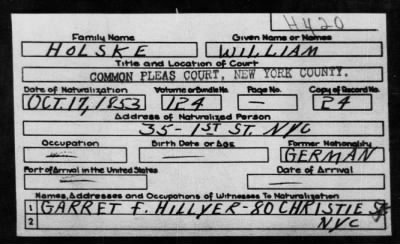 4420
Family Name Given Name or Names
HOLSKE WILLIAM
Title and Location of Court
COMMON PLEAS COURT, NEW YORK COUNTY.
Date of Naturalization Volume or Bundle No. Page No. Copy of Record No.
OCT. 17, 1853 124 — 24
Address of Naturalized Person
35-1ST ST. NYC
Occupation Birth Date or Age Former Nationality
— — GERMAN
Port of Arrival in the United States Date of Arrival
— —
Names, Addresses and Occupations of Witnesses To Naturalization
1 GARRET F. HILLYER-80 CHRISTIE St
2 NYC